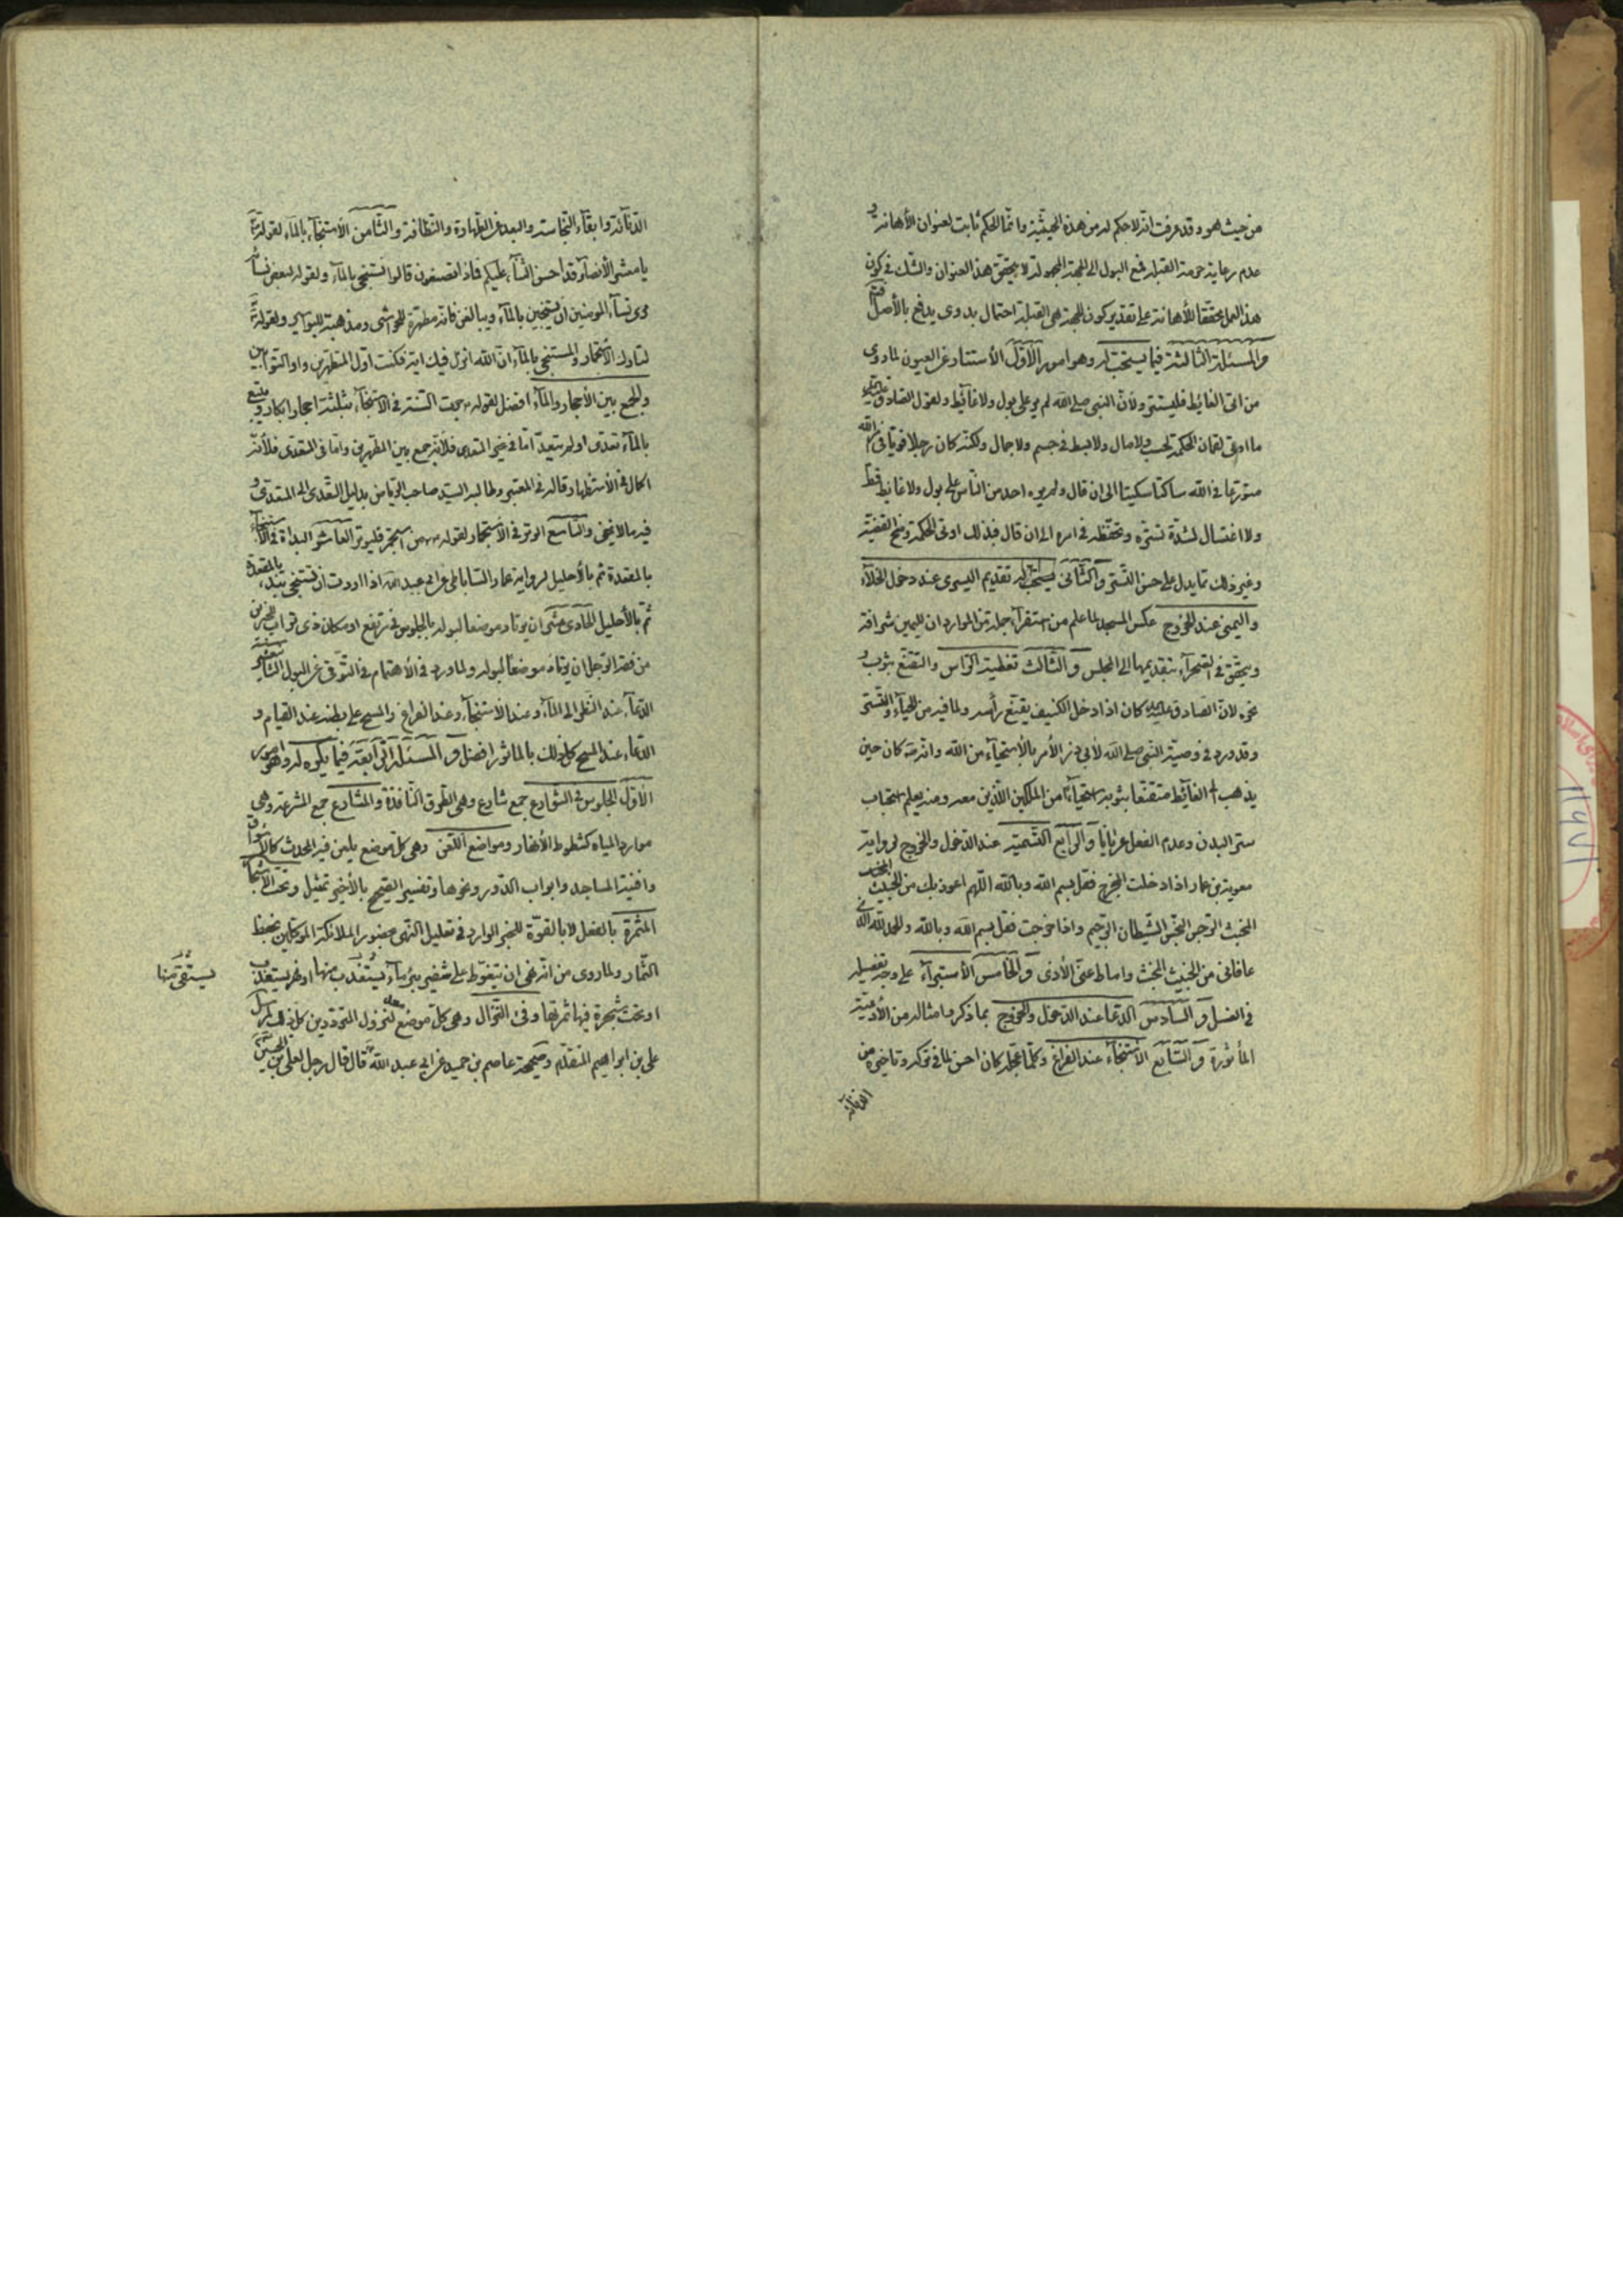 من حيث هو وقد عرفت انه لا حكم له من هذه الحيثية وانما الحكم ثابت لعنوان الأهانة و
عدم رعاية حرمة القبلة فمع البول الى الجهة المجهولة لا يتحقق هذا العنوان والشك في كون
هذا العمل محققا للأهانة على تقدير كون الجهة هي القبلة احتمال بدوى يدفع بالأصل
والمسئلة الثالثة فيما يستحب له وهو امور الأول الأستتار عن العيون لما روى
من اتى الغائط فليستتر ولأن النبى صلى الله لم ير على بول ولا غائط ولقول الصادق
ما اوتى لقمان الحكمة لحسب ولا مال ولا بسط في جسم ولا جمال ولكنه كان رجلا قويا في امر الله
متورعا في الله ساكتا سكيتا الى ان قال ولم يره احد من الناس على بول ولا غائط قط
ولا اغتسال لشدة تستره وتحفظه في امره الى ان قال فبذلك اوتى الحكمة ومنح القضية
وغير ذلك مما يدل على حسن التستر والثانى يستحب له تقديم اليسرى عند دخول الخلاء
واليمنى عند الخروج عكس المسجد لما علم من استقراء جملة من الموارد ان لليمين شرافة
ويتحقق في الصحراء بتقديمها الى المجلس والثالث تغطية الراس والتقنع بثوب و
نحوه لان الصادق كان اذا دخل الكنيف يقنع رأسه ولما فيه من الحياء والتستر
وقد ورد في وصية النبى صلى الله لأبي ذر الأمر بالأستحياء من الله وانه كان حين
يذهب الى الغائط متقنعا بثوبه استحياء من الملكين الذين معه ومنه يعلم استحباب
ستر البدن وعدم الفعل عريانا والرابع التسمية عند الدخول والخروج لرواية
معوية بن عمار اذا دخلت المخرج فقل بسم الله وبالله اللهم اعوذ بك من الخبيث
المخبث الرجس النجس الشيطان الرجيم واذا خرجت فقل بسم الله وبالله والحمد لله الذى
عافانى من الخبيث المخبث واماط عنى الأذى والخامس الأستبراء على وجه تفصيله
في الغسل والسادس الدعا عند الدخول والخروج بما ذكر وامثاله من الأدعية
المأثورة والسابع الاستنجاء عند الفراغ وكلما عجله كان احسن لما في تركه وتاخيره من
الدنائة
الدنائة وابقاء النجاسة والبعد عن الطهارة والنظافة والثامن الأستنجاء بالماء لقوله
يا معشر الأنصار قد احسن الثناء عليكم فماذا تصنعون قالوا نستنجى بالماء ولقوله لبعض نسائه
مرى نساء المومنين ان يستنجين بالماء ويبالغن فانه مطهرة للحواشى ومذهبة للبواسير ولقوله
لتارك الأستجمار والمستنجى بالماء ان الله انزل فيك اية فكنت اول المتطهرين واول التوابين
والجمع بين الأحجار والماء افضل لقوله جرت السنة في الاستنجاء بثلثة احجار ابكار ويتبع
بالماء تعدى او لم يتعد اما في غير المتعدى فلانه جمع بين المطهرين واما في المتعدى فلأنه
اكمال في الأستظهار قاله في المعتبر وطالبه السيد صاحب الرياض بدليل التعدى الى المتعدى و
فيه ما لا يخفى والتاسع الوتر في الأستجمار لقوله من استجمر فليوتر العاشر البدأة في الاستنجاء
بالمقعدة ثم بالأحليل لرواية عمار الساباطى عن ابى عبد الله اذا اردت ان تستنجى تبدء بالمقعدة
ثم بالأحليل الحادى عشر ان يرتاد موضعا لبوله بالجلوس في مرتفع او مكان ذى تراب للخبر من
من فقه الرجل ان يرتاد موضعا لبوله ولما ورد في الأهتمام في التوقى عن البول الثانى عشر
الدعاء عند النظر الى الماء وعند الأستنجاء وعند الفراغ والمسح على بطنه عند القيام و
الدعاء عند المسح كل ذلك بالماثور افضل والمسئلة الرابعة فيما يكره له وهو امور
الأول الجلوس في الشوارع جمع شارع وهى الطرق النافذة والمشارع جمع المشرعة وهى
موارد المياه كشطوط الأنهار ومواضع اللعن وهى كل موضع يلعن فيه المحدث كالأسواق
وافنية المساجد وابواب الدور ونحوها وتفسير الصحيح بالأخير تمثيل وتحت الأشجار
المثمرة بالفعل لا بالقوة للخبر الوارد في تعليل النهى بحضور الملائكة الموكلين بحفظ
الثمار ولما روى من انه نهى ان يتغوط على شفير بئر ماء يستعذب منها او نهر يستعذب
يستقى منها
او تحت شجرة فيها ثمرتها وفئ النزال وهى كل موضع معد لنزول المترددين كل ذلك
على بن ابراهيم المتقدم وصحيحة عاصم بن حميد عن ابى عبد الله قال قال رجل لعلى بن الحسين